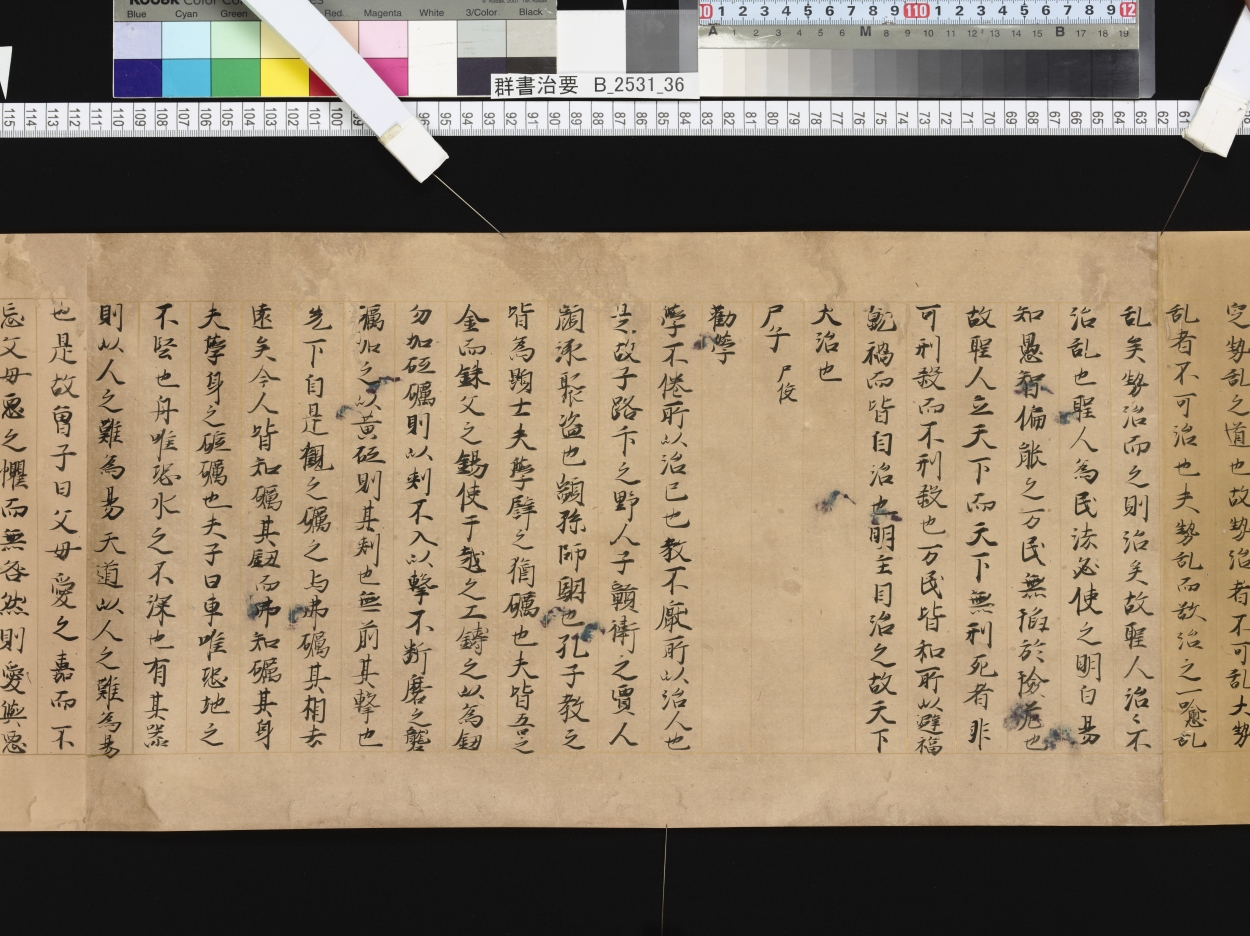 定勢乱之道也故勢治者不可乱大勢
乱者不可治也夫勢乱而欲治之一喩乱
乱矣勢治而之則治矣故聖人治〻不
治乱也聖人為民法必使之明白易
知愚智偏能之万民無陷於險危也
故聖人立天下而天下無刑死者非
可刑殺而不刑殺也万民皆和所以避禍
就福而皆自治也明主因治之故天下
大治也
尸子 尸佼
勸學
學不倦所以治己也教不厭所以治人也
是故子路卞之野人子贛衛之賈人
顔涿聚盗也顓孫師駔也孔子教之
皆為顯士夫學辟之猶礪也夫昆吾之
金而銖父之錫使于越之工鑄之以為劔
勿加砥礪則以刾不入以擊不断磨之礱
礪加之以黄砥則其刾也無前其擊也
无下自是觀之礪之与弗礪其相去
遠矣今人皆知礪其劔而弗知礪其身
夫學身之砥礪也夫子曰車唯恐地之
不堅也舟唯恐水之不深也有其器
則以人之難為易夫道以人之難為易
也是故曾子曰父母愛之嘉而不
忘父母悪之懼而無咎然則愛與悪
群書治要 B_2531_36